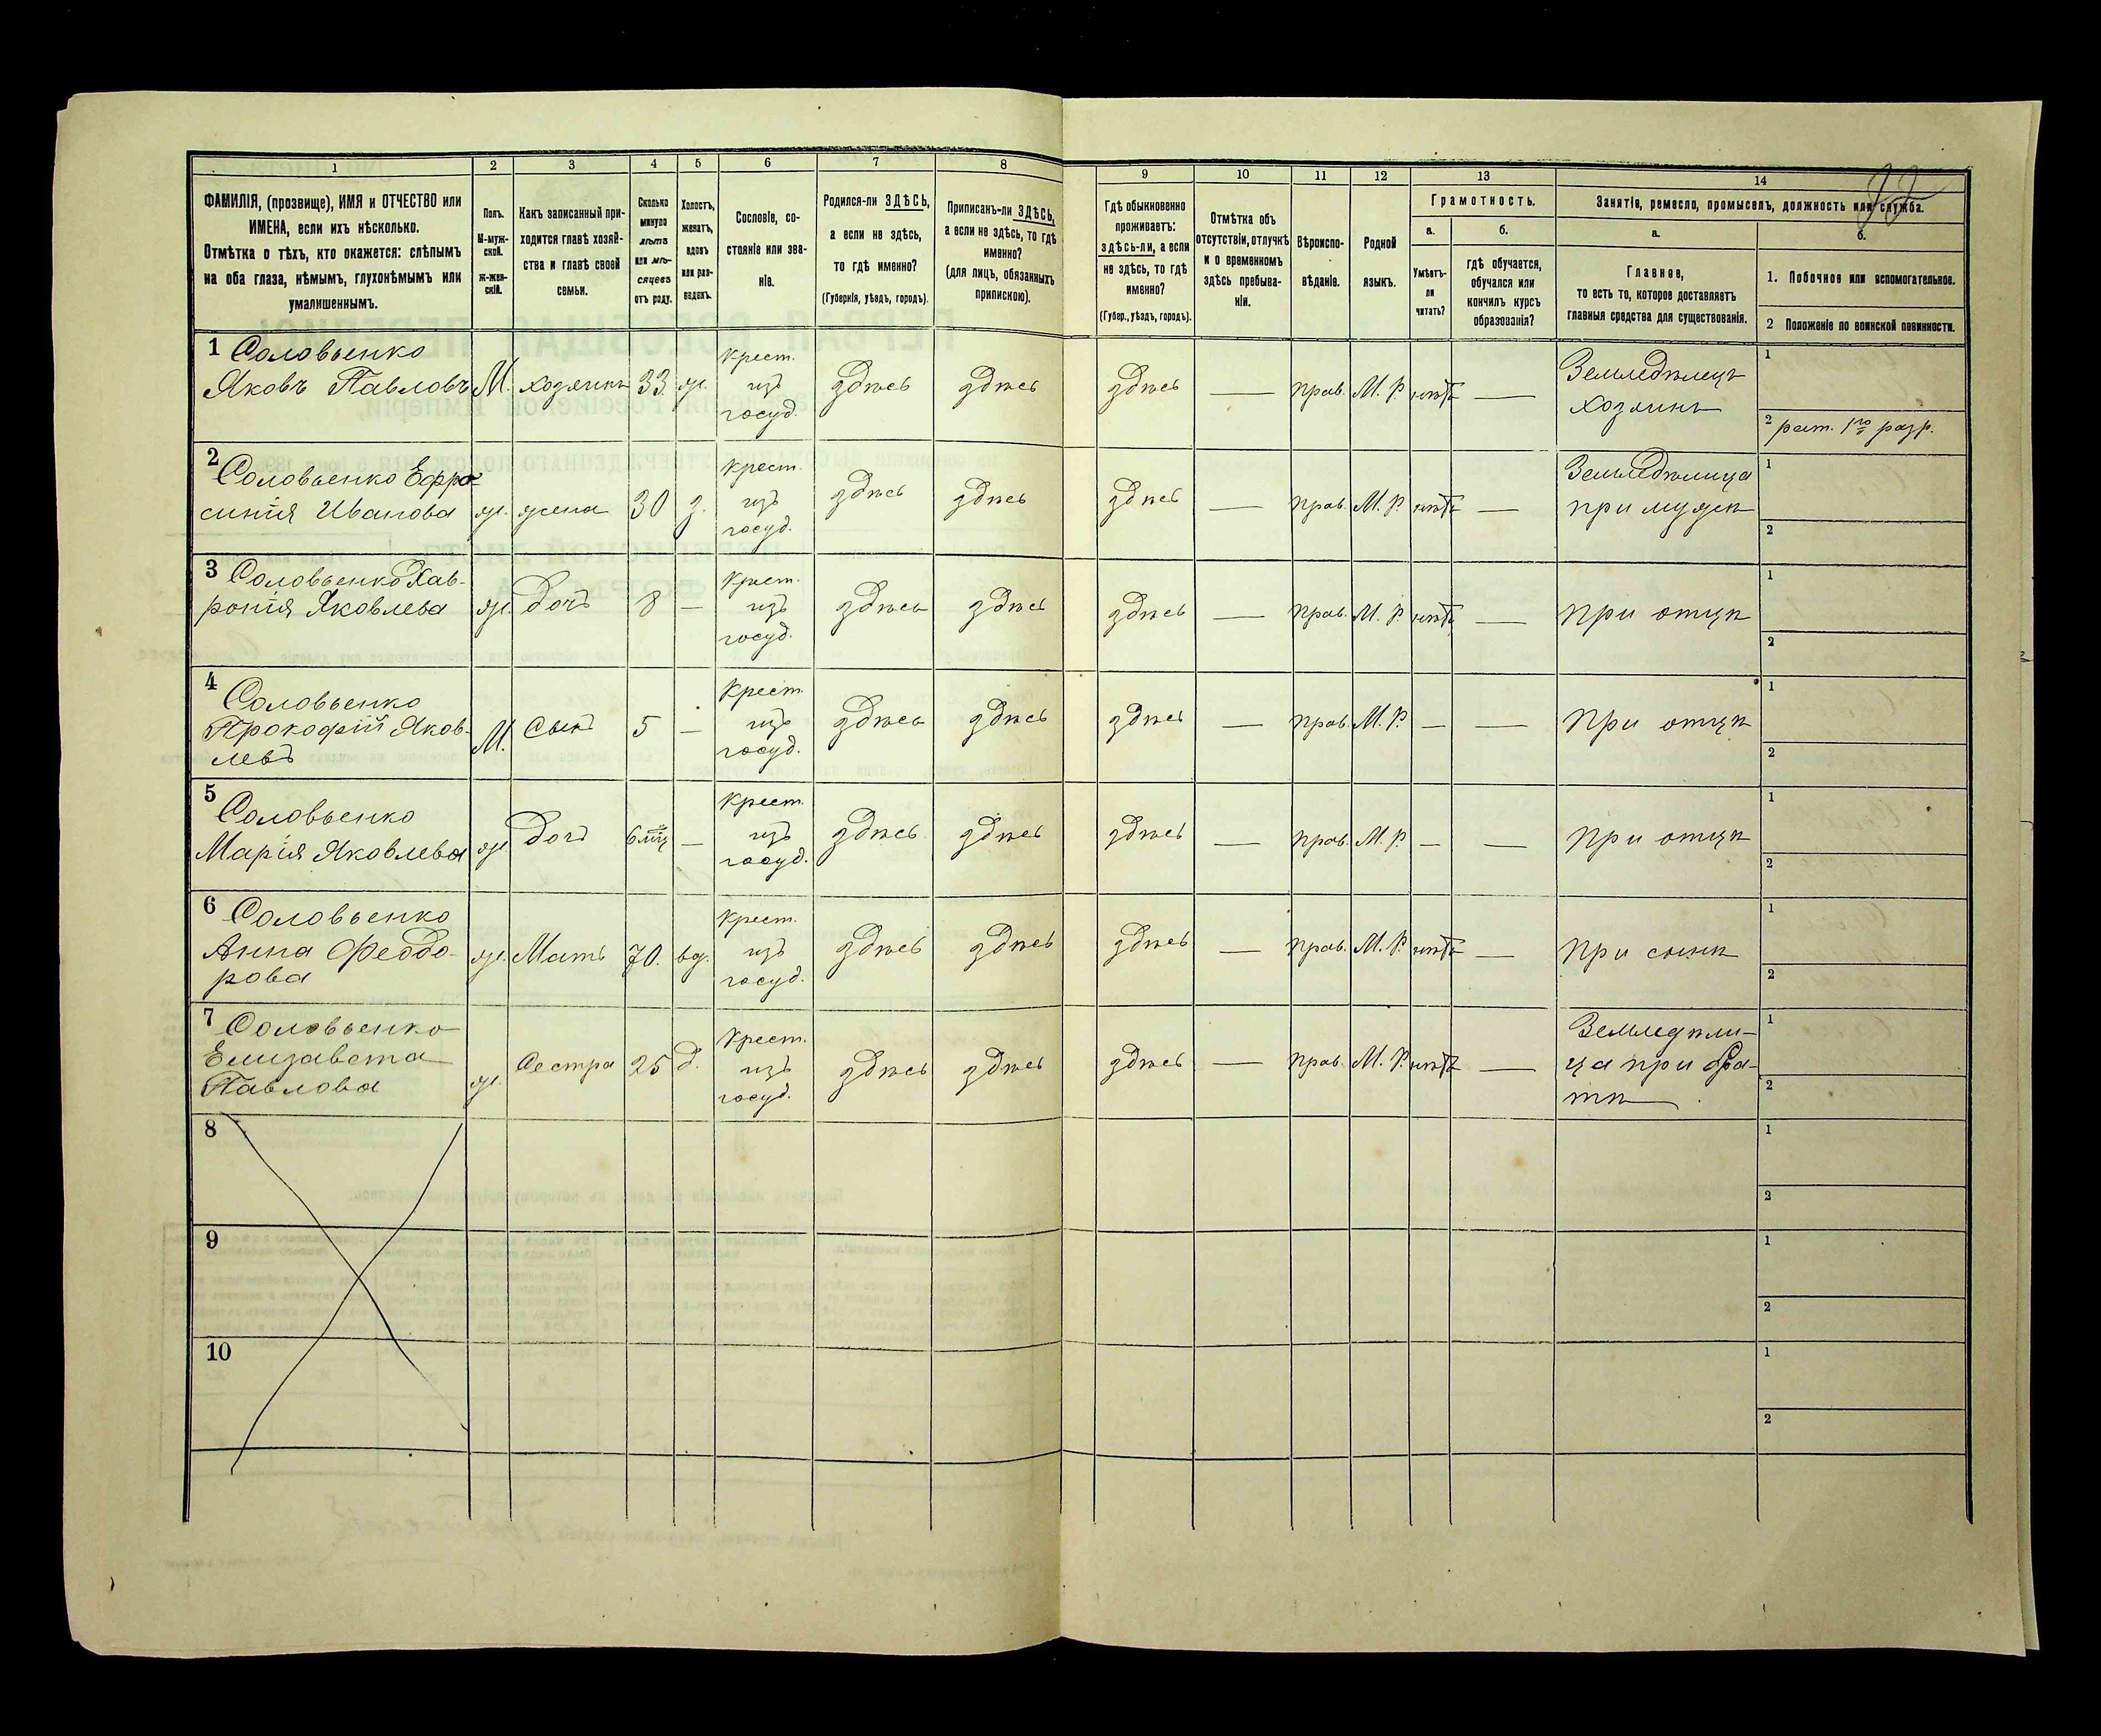 1 2 3 4 5 6 7 8 9 10 11 12 13 14
ФАМИЛІЯ, (прозвище), ИМЯ и ОТЧЕСТВО или
ИМЕНА, если ихъ нѣсколько.
Отмѣтка о тѣхъ, кто окажется: слѣпымъ
на оба глаза, нѣмымъ, глухонѣмымъ или
умалишеннымъ.
Полъ.
М-муж-
ской.
Ж-жен-
скій.
Какъ записанный при-
ходится главѣ хозяй-
ства и главѣ своей
семьи.
Сколько
минуло
лѣтъ
или мѣ-
сяцевъ
отъ роду.
Холостъ,
женатъ,
вдовъ
или раз-
веденъ.
Сословіе, со-
стояніе или зва-
ніе.
Родился-ли ЗДѢСЬ,
а если не здѣсь,
то гдѣ именно?
(Губернія, уѣздъ, городъ).
Приписанъ-ли ЗДѢСЬ,
а если не здѣсь, то гдѣ
именно?
(для лицъ, обязанныхъ
припискою).
Гдѣ обыкновенно
проживаетъ:
здѣсь-ли, а если
не здѣсь, то гдѣ
именно?
(Губер., уѣздъ, городъ).
Отмѣтка объ
отсутствіи, отлучкѣ
и о временномъ
здѣсь пребыва-
ніи.
Вѣроиспо-
вѣданіе.
Родной
языкъ.
Грамотность.
а.
Умѣетъ-
ли
читать?
б.
гдѣ обучается,
обучался или
кончилъ курсъ
образованія?
Занятіе, ремесло, промыселъ, должность или служба.
а.
Главное,
то есть то, которое доставляетъ
главныя средства для существованія.
б.
1. Побочное или вспомогательное.
2 Положеніе по воинской повинности.
1 Соловьенко
Яковъ Павловъ
М. хозяинъ 33 ж.
Крест.
изъ
госуд.
здѣсь здѣсь здѣсь — прав. М. Р. нѣтъ —
Земледѣлецъ
хозяинъ
1
2 рат. 1го разр.
2 Соловьенко Ефро-
синія Иванова
ж. жена 30 з.
Крест.
изъ
госуд.
здѣсь здѣсь здѣсь — прав. М. Р. нѣтъ —
Земледѣлица
при мужѣ
1
2
3 Соловьенко Хав-
ронія Яковлева
ж. дочь 8 —
Крест.
изъ
госуд.
здѣсь здѣсь здѣсь — прав. М. Р. нѣтъ —
при отцѣ
1
2
4 Соловьенко
Прокофій Яков-
левъ
М. Сынъ 5 —
Крест.
изъ
госуд.
здѣсь здѣсь здѣсь — прав. М. Р. — —
при отцѣ
1
2
5 Соловьенко
Марія Яковлева
ж. дочь 6 мц —
Крест.
изъ
госуд.
здѣсь здѣсь здѣсь — прав. М. Р. — —
при отцѣ
1
2
6 Соловьенко
Анна Феодо-
рова
ж. Мать 70. вд.
Крест.
изъ
госуд.
здѣсь здѣсь здѣсь — прав. М. Р. нѣтъ —
при сынѣ
1
2
7 Соловьенко
Елизавета
Павлова
ж. Сестра 25 д.
Крест.
изъ
госуд.
здѣсь здѣсь здѣсь — прав. М. Р. нѣтъ —
Земледѣли-
ца при бра-
тѣ
1
2
8
1
2
9
1
2
10
1
2